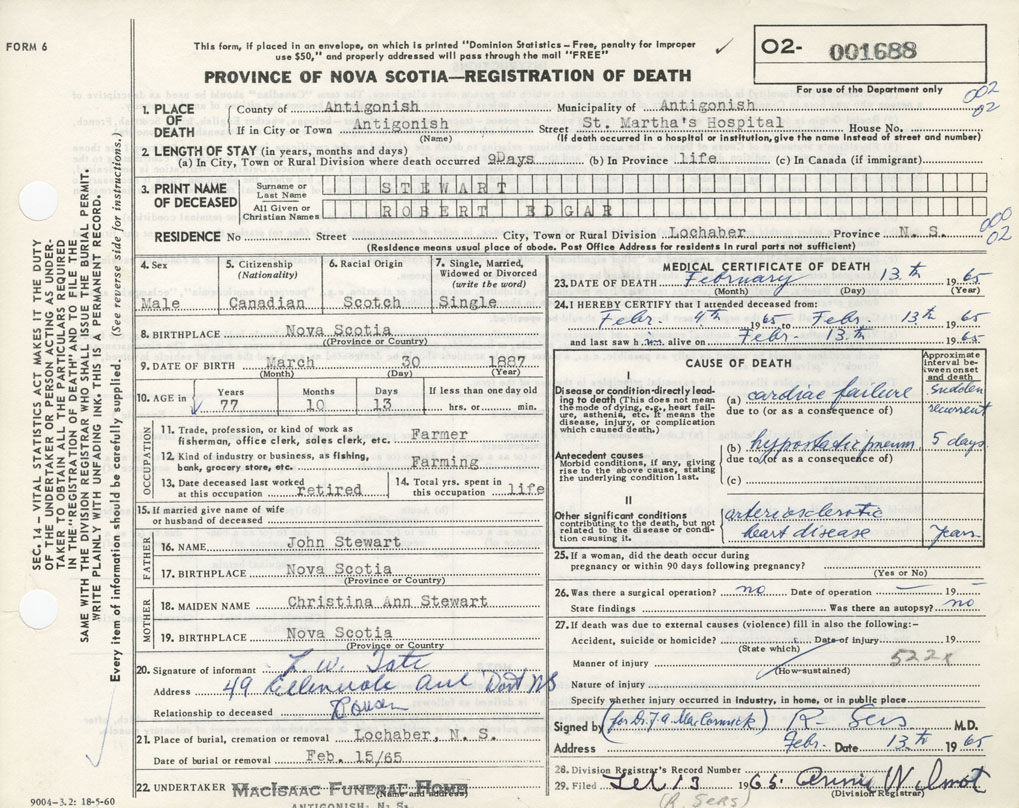 FORM 6
This form, if placed in an envelope, on which is printed "Dominion Statistics – Free, penalty for improper
use $50," and properly addressed will pass through the mail "FREE"
PROVINCE OF NOVA SCOTIA—REGISTRATION OF DEATH
O2- 001688
For use of the Department only
002
02
SEC. 14 – VITAL STATISTICS ACT MAKES IT THE DUTY
OF THE UNDERTAKER OR PERSON ACTING AS UNDER-
TAKER TO OBTAIN ALL THE PARTICULARS REQUIRED
IN THE "REGISTRATION OF DEATH" AND TO FILE THE
SAME WITH THE DIVISION REGISTRAR WHO SHALL ISSUE THE BURIAL PERMIT.
WRITE PLAINLY WITH UNFADING INK. THIS IS A PERMANENT RECORD.
Every item of information should be carefully supplied. (See reverse side for instructions.)
1. PLACE OF DEATH
County of Antigonish Municipality of Antigonish
If in City or Town Antigonish Street St. Martha's Hospital House No.
(Name) (If death occurred in a hospital or institution, give the name instead of street and number)
2. LENGTH OF STAY (in years, months and days)
(a) In City, Town or Rural Division where death occurred 9Days (b) In Province life (c) In Canada (if immigrant)
3. PRINT NAME OF DECEASED
Surname or Last Name STEWART
All Given or Christian Names ROBERT EDGAR
000
02
RESIDENCE No Street City, Town or Rural Division Lochaber Province N. S.
(Residence means usual place of abode. Post Office Address for residents in rural parts not sufficient)
4. Sex Male
5. Citizenship (Nationality) Canadian
6. Racial Origin Scotch
7. Single, Married, Widowed or Divorced (write the word) Single
8. BIRTHPLACE Nova Scotia
(Province or Country)
9. DATE OF BIRTH March 30 1887
(Month) (Day) (Year)
10. AGE in Years 77 Months 10 Days 13 If less than one day old hrs. or min.
OCCUPATION
11. Trade, profession, or kind of work as
fisherman, office clerk, sales clerk, etc. Farmer
12. Kind of industry or business, as fishing,
bank, grocery store, etc. Farming
13. Date deceased last worked
at this occupation retired
14. Total yrs. spent in
this occupation life
15. If married give name of wife
or husband of deceased
FATHER
16. NAME John Stewart
17. BIRTHPLACE Nova Scotia
(Province or Country)
MOTHER
18. MAIDEN NAME Christina Ann Stewart
19. BIRTHPLACE Nova Scotia
(Province or Country)
20. Signature of informant W. Tate
Address 49 Ave Dart NS
Relationship to deceased
21. Place of burial, cremation or removal Lochaber, N. S.
Date of burial or removal Feb. 15/65
22. UNDERTAKER MacIsaac Funeral Home
(Name and address)
ANTIGONISH, N. S.
9004–3.2: 18-5-60
MEDICAL CERTIFICATE OF DEATH
23. DATE OF DEATH February 13th 1965
(Month) (Day) (Year)
24. I HEREBY CERTIFY that I attended deceased from:
Febr. 4th 1965 to Febr. 13th 1965
and last saw him alive on Febr. 13th 1965
CAUSE OF DEATH
Approximate interval between onset and death
I
Disease or condition directly lead-
ing to death (This does not mean
the mode of dying, e.g., heart fail-
ure, asthenia, etc. It means the
disease, injury, or complication
which caused death.)
(a) cardiac failure sudden
due to (or as a consequence of) recurrent
Antecedent causes
Morbid conditions, if any, giving
rise to the above cause, stating
the underlying condition last.
(b) hypostatic pneum. 5 days
due to (or as a consequence of)
(c)
II
Other significant conditions
contributing to the death, but not
related to the disease or condi-
tion causing it.
arteriosclerotic
heart disease years
25. If a woman, did the death occur during
pregnancy or within 90 days following pregnancy?
(Yes or No)
26. Was there a surgical operation? no Date of operation 19
State findings Was there an autopsy? no
27. If death was due to external causes (violence) fill in also the following:–
Accident, suicide or homicide? Date of injury 19
(State which)
Manner of injury 522x
(How sustained)
Nature of injury
Specify whether injury occurred in Industry, in home, or in public place
Signed by (for Dr. J. A. MacCormick) R. Sers M.D.
Address Date Febr. 13th 1965
28. Division Registrar's Record Number
29. Filed Feb 13 1965.
(Division Registrar)
(R. SERS)